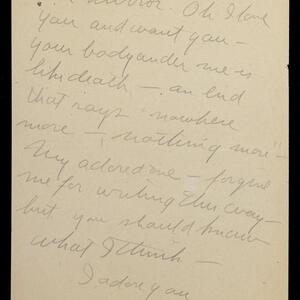 mirror. Oh I love
you and want you –
your body under me is
like death – an end
that says "nowhere
more – nothing more" –
My adored one – forgive
me for writing this way –
but you should know
what I think –
I adore you